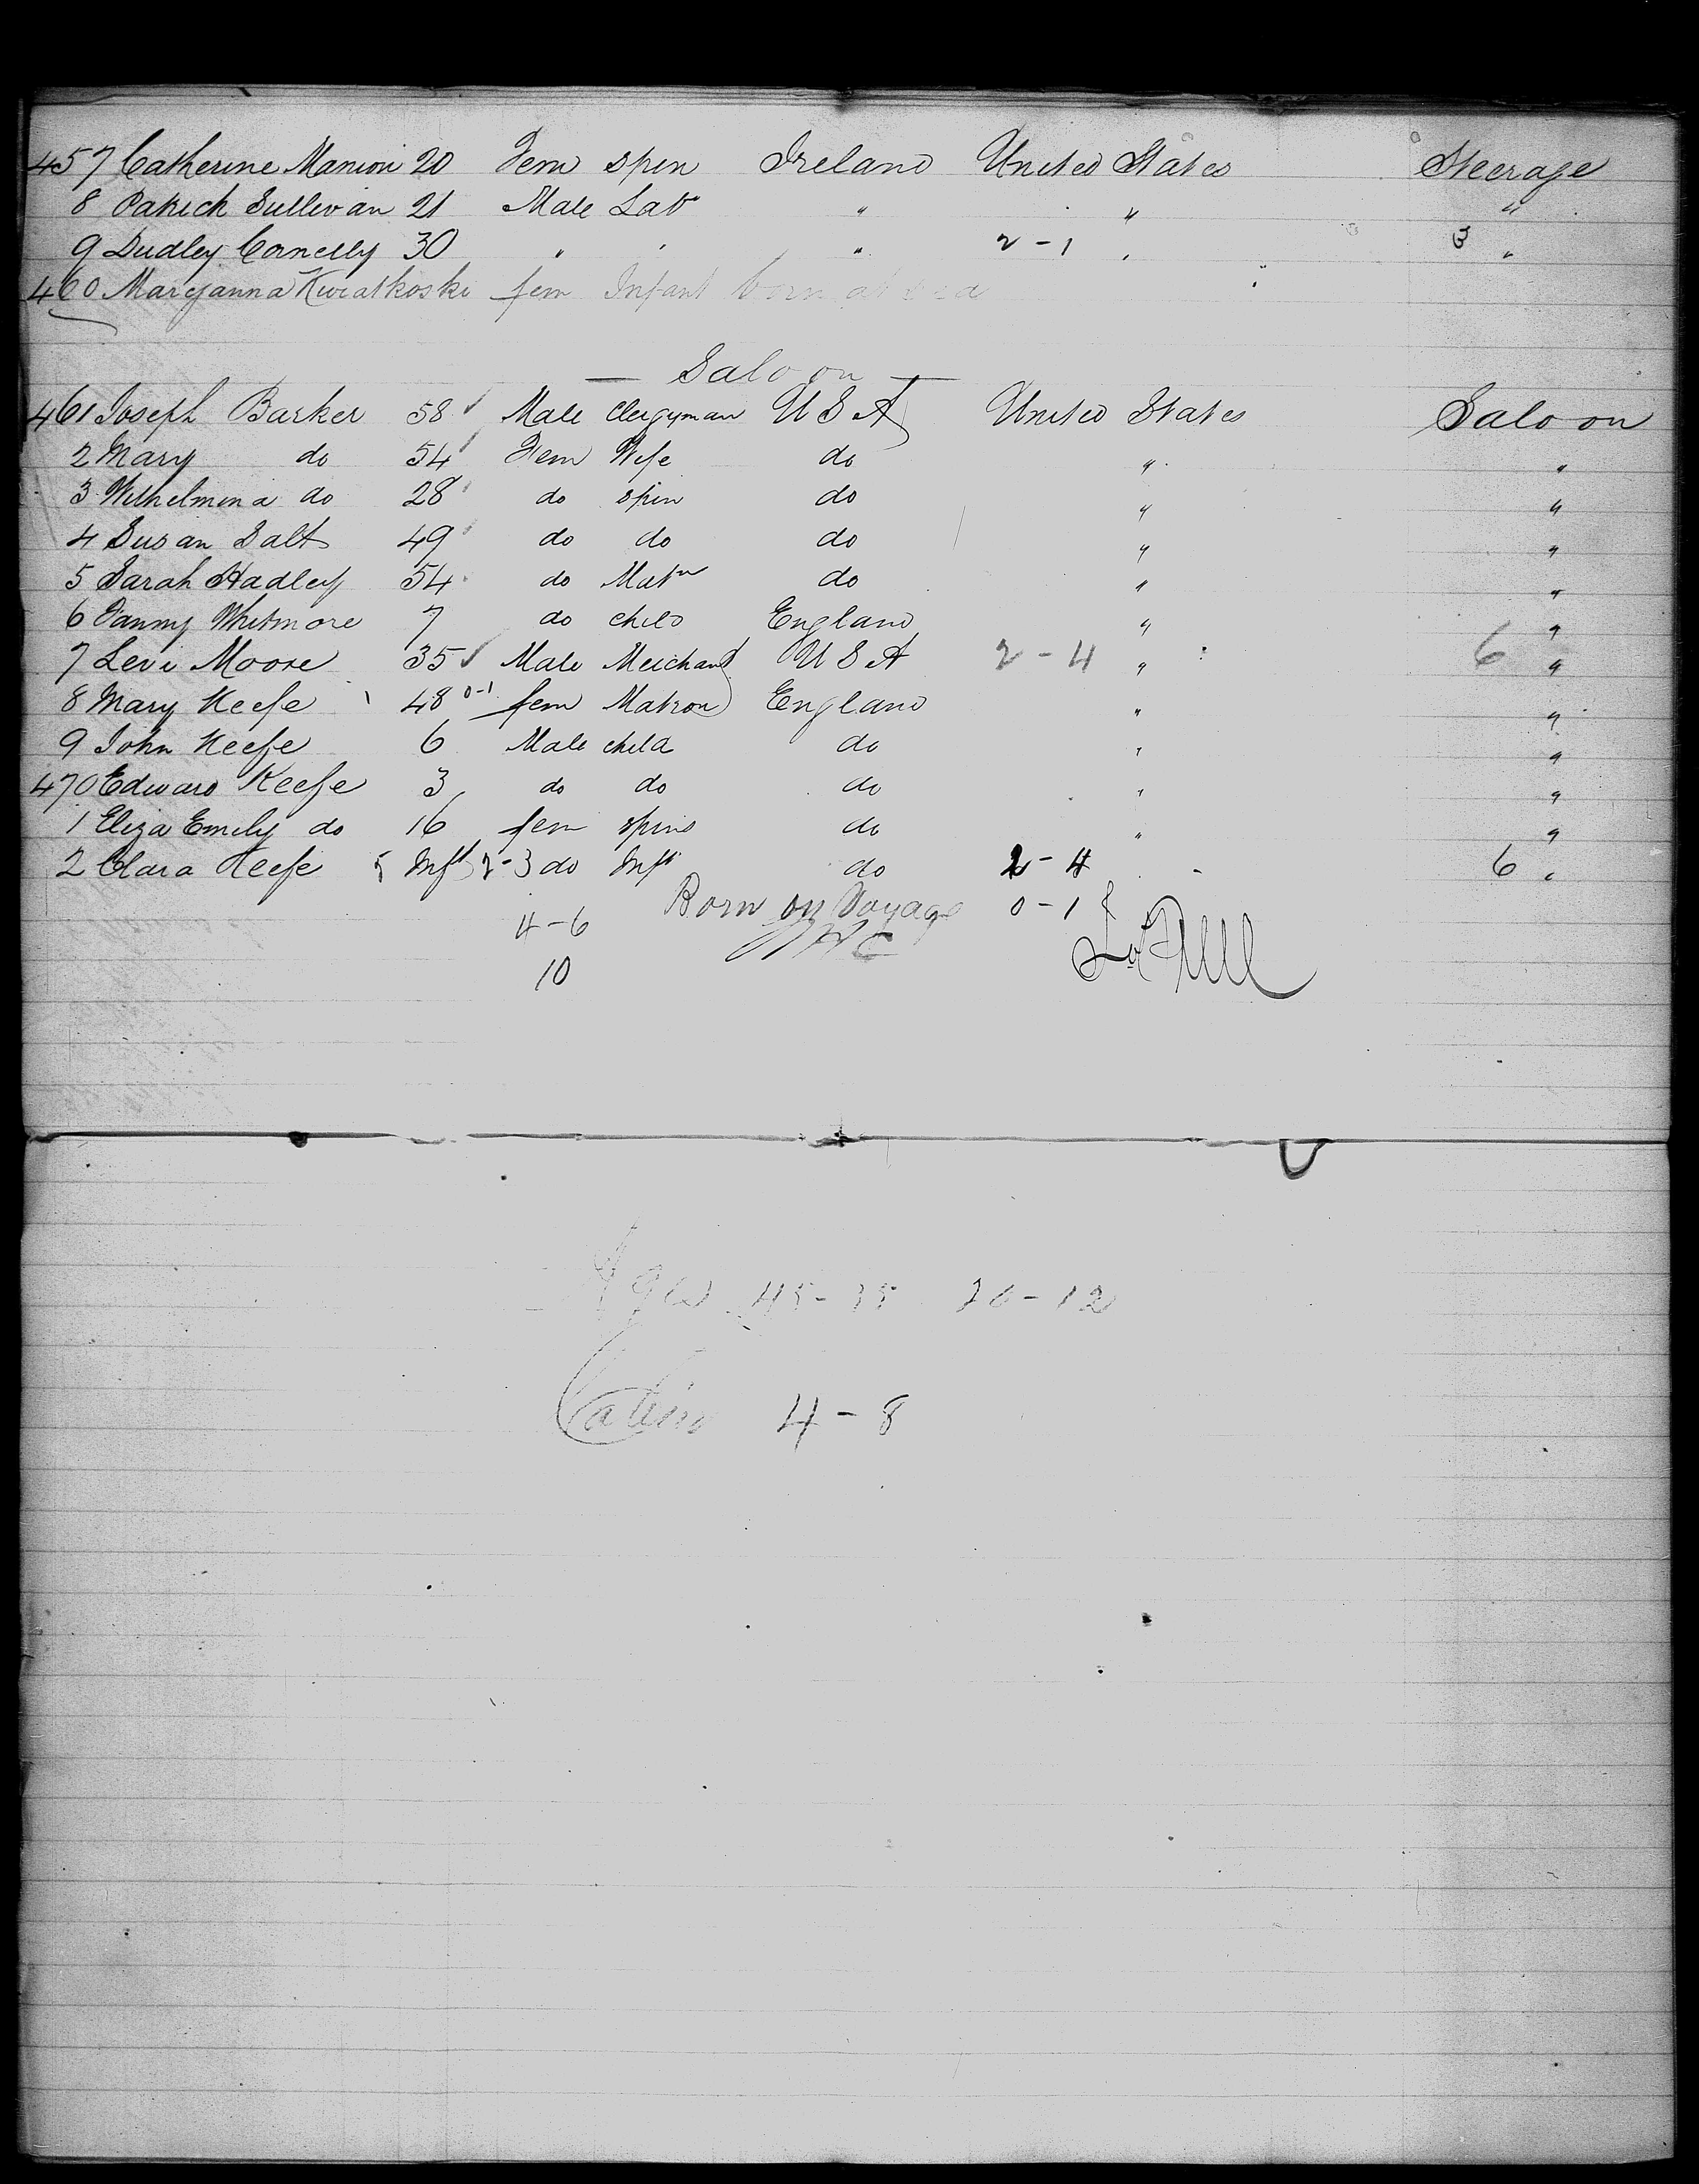 457 Catherine Manion 20 Fem spin Ireland United States Steerage
8 Patrick Sullivan 21 Male Lab " " "
9 Dudley Connelly 30 " " " 2-1 " 3 "
460 Maryanna Kwiatkoski fem Infant born at sea
— Saloon —
461 Joseph Barker 58 Male Clergyman U S A United States Saloon
2 Mary do 54 Fem Wife do " "
3 Wilhelmina do 28 do spin do " "
4 Susan Salt 49 do do do " "
5 Sarah Hadley 54 do Matn do " "
6 Fanny Whitmore 7 do child England " "
7 Levi Moore 35 Male Merchant U S A 2-4 " 6 "
8 Mary Keefe 48 0-1 fem Matron England " "
9 John Keefe 6 Male child do " "
470 Edward Keefe 3 do do do " "
1 Eliza Emily do 16 fem spins do " "
2 Clara Keefe 5 Inft 2-3 do Inft do 2-4 " 6 "
Born on Voyage 0-1
4-6
10
20-12
4-8